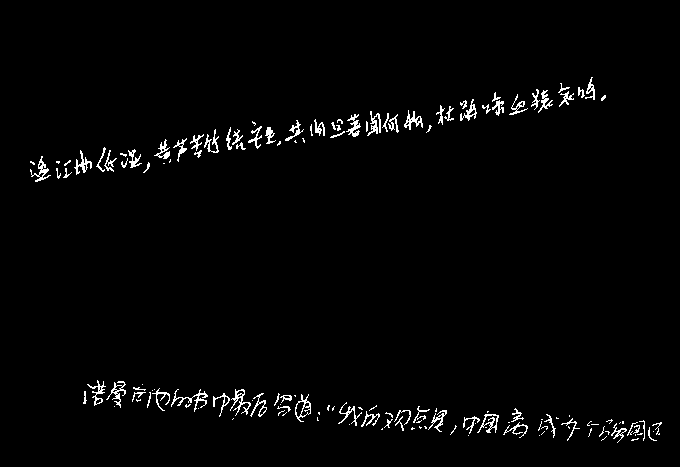 湓江地低湿,黄芦苦竹绕宅生.其间旦暮闻何物,杜鹃啼血猿哀鸣.
诺曼在他的书中最后写道:“我的观点是,中国离成为个强国